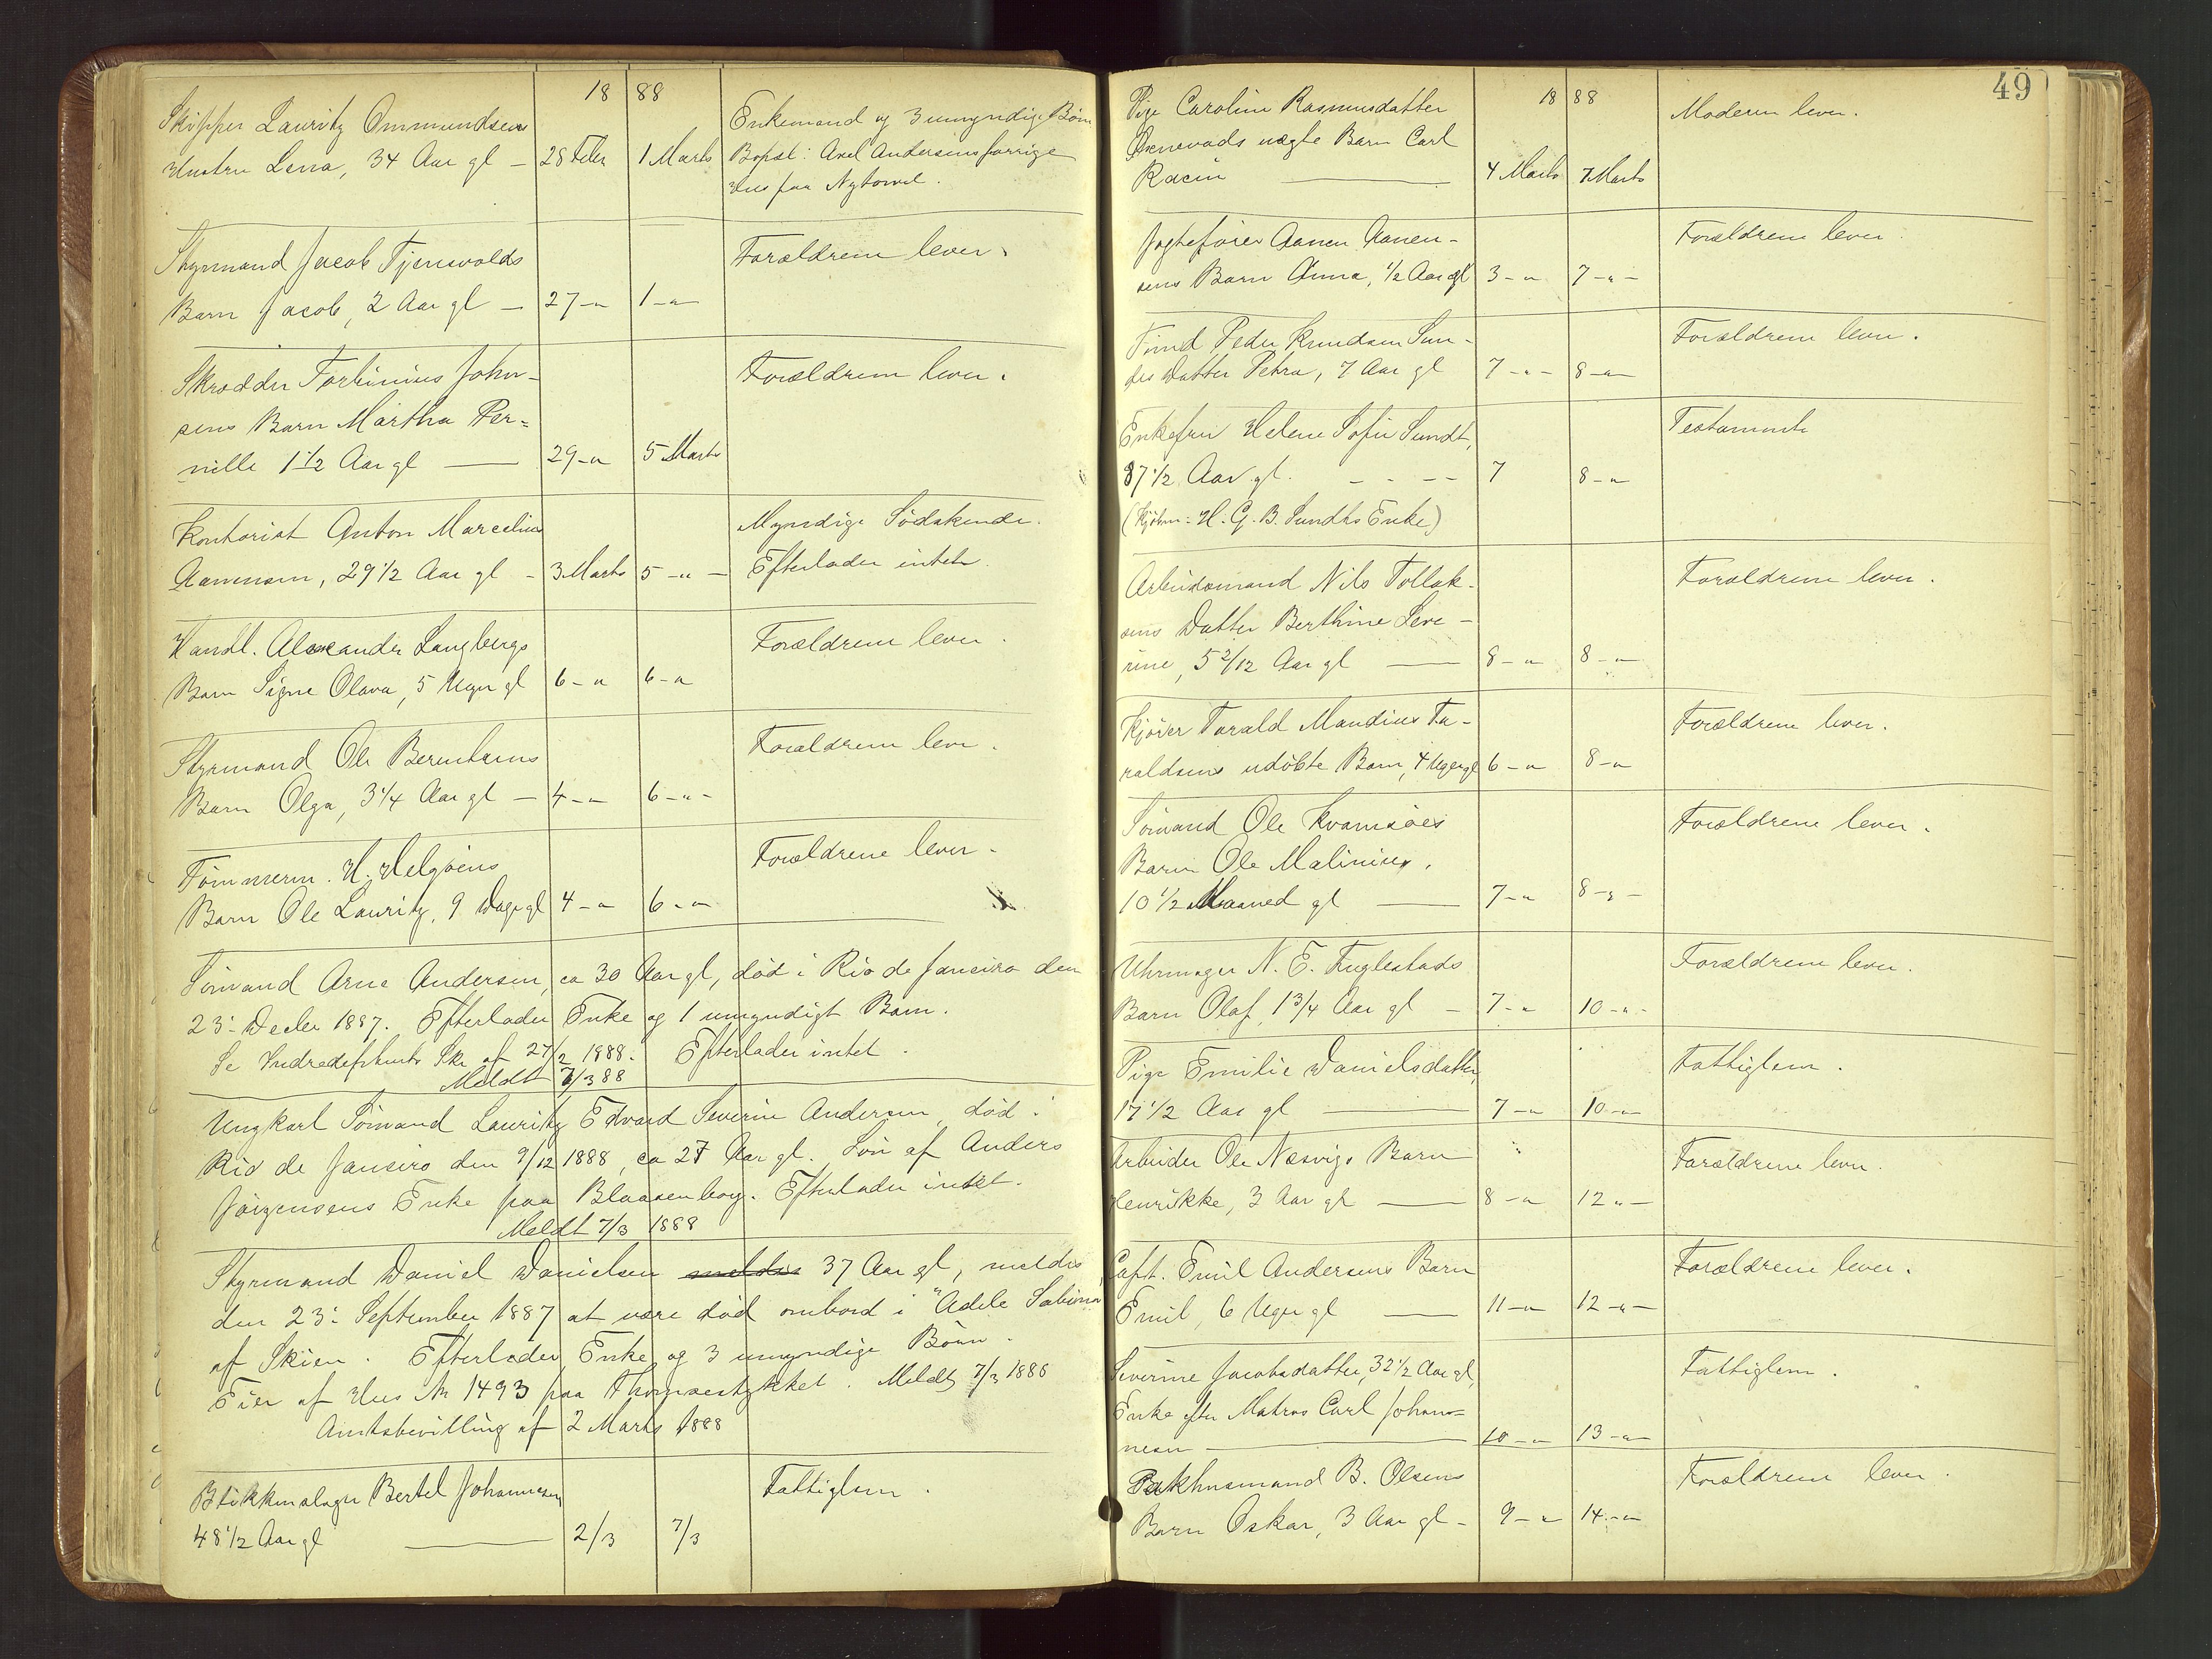 18 88
Skipper Lauritz Ommundsens
Enkemand og 3 umyndige Børn
Hustru Lena, 34 Aar gl – 28 Febr 1 Marts
Bopæl: Axel Andersens forrige
Hus paa Nytorvet.
Styrmand Jacob Tjensvolds
Forældrene lever.
Barn Jacob, 2 Aar gl – 27 –"– 1 –"–
Skrædder Torbinius John-
Forældrene lever.
sens Barn Martha Per-
nille 1 1/2 Aar gl — 29 –"– 5 Marts
Kontorist Anton Marcelius
Myndige Södskende.
Aanensen, 29 1/2 Aar gl – 3 Marts 5 –"–
Efterlader intet.
Handl. Alexander Langbergs
Forældrene lever.
Barn Signe Olava, 5 Uger gl 6 –"– 6 –"–
Styrmand Ole Berentsens
Forældrene lever.
Barn Olga, 3 1/4 Aar gl – 4 –"– 6 –"–
Tömmerm. H. Helgöens
Forældrene lever.
Barn Ole Lauritz, 9 Dage gl 4 –"– 6 –"–
Sömand Arne Andersen, ca 30 Aar gl, död i Rio de Janeiro den
23: Decbr 1887. Efterlader Enke og 1 umyndigt Barn.
Se Indredepartmts Skr. af 27/2 1888. Efterlader intet.
Meldt 7/3 88
Ungkarl Sömand Lauritz Edvard Severin Andersen, död i
Rio de Janeiro den 9/12 1888, ca 27 Aar gl. Sön af Anders
Jörgensens Enke paa Blaasenborg. Efterlader intet.
Meldt 7/3 1888
Styrmand Daniel Danielsen meldes 37 Aar gl, meldes
den 23: September 1887 at være död ombord i "Adele Sabina"
af Skien. Efterlader Enke og 3 umyndige Börn.
Eier af Hus No 1493 paa Thomasstykket. Meldt 7/3 1888
Amtsbevilling af 2 Marts 1888
Blikkenslager Bertel Johannesen
Fattiglem.
48 1/2 Aar gl — 2/3 7/3
49
18 88
Pige Caroline Rasmusdatter
Moderen lever.
uægte Barn Carl
— 4 Marts 7 Marts
Jagtefører Aanen Aanen-
Forældrene lever.
sens Barn Anna, 1/2 Aar gl 3 –"– 7 –"–
Peder Knudsen Sun-
Forældrene lever.
des Datter Petra, 7 Aar gl 7 –"– 8 –"–
Enkefru Helene Sofie Sundt,
Testamente
87 1/2 Aar gl. – – – – 7 8 –"–
(Kjøbm: H. G. B. Sundts Enke)
Arbeidsmand Nils Tollak-
Forældrene lever.
sens Datter Berthine Seve-
rine, 5 2/12 Aar gl — 8 –"– 8 –"–
Kjører Torald Mandius Ta-
Forældrene lever.
raldsens udöbte Barn, 4 Uger gl 6 –"– 8 –"–
Sömand Ole Kvamsöes
Forældrene lever.
Barn Ole Malinius,
10 1/2 Maaned gl — 7 –"– 8 –"–
Uhrmager N. E. Fuglestads
Forældrene lever.
Barn Olaf, 1 3/4 Aar gl – 7 –"– 10 –"–
Pige Emilie Danielsdatter,
Fattiglem.
17 1/2 Aar gl — 7 –"– 10 –"–
Arbeider Ole Næsvigs Barn
Forældrene lever.
Henrikke, 3 Aar gl — 8 –"– 12 –"–
Capt. Emil Andersens Barn
Forældrene lever.
Emil, 6 Uger gl — 11 –"– 12 –"–
Severine Jacobsdatter, 32 1/2 Aar gl,
Fattiglem.
Enke efter Matros Carl Johan-
nesen — 10 –"– 13 –"–
Pakhusmand B. Olsens
Forældrene lever.
Barn Oskar, 3 Aar gl – 9 –"– 14 –"–